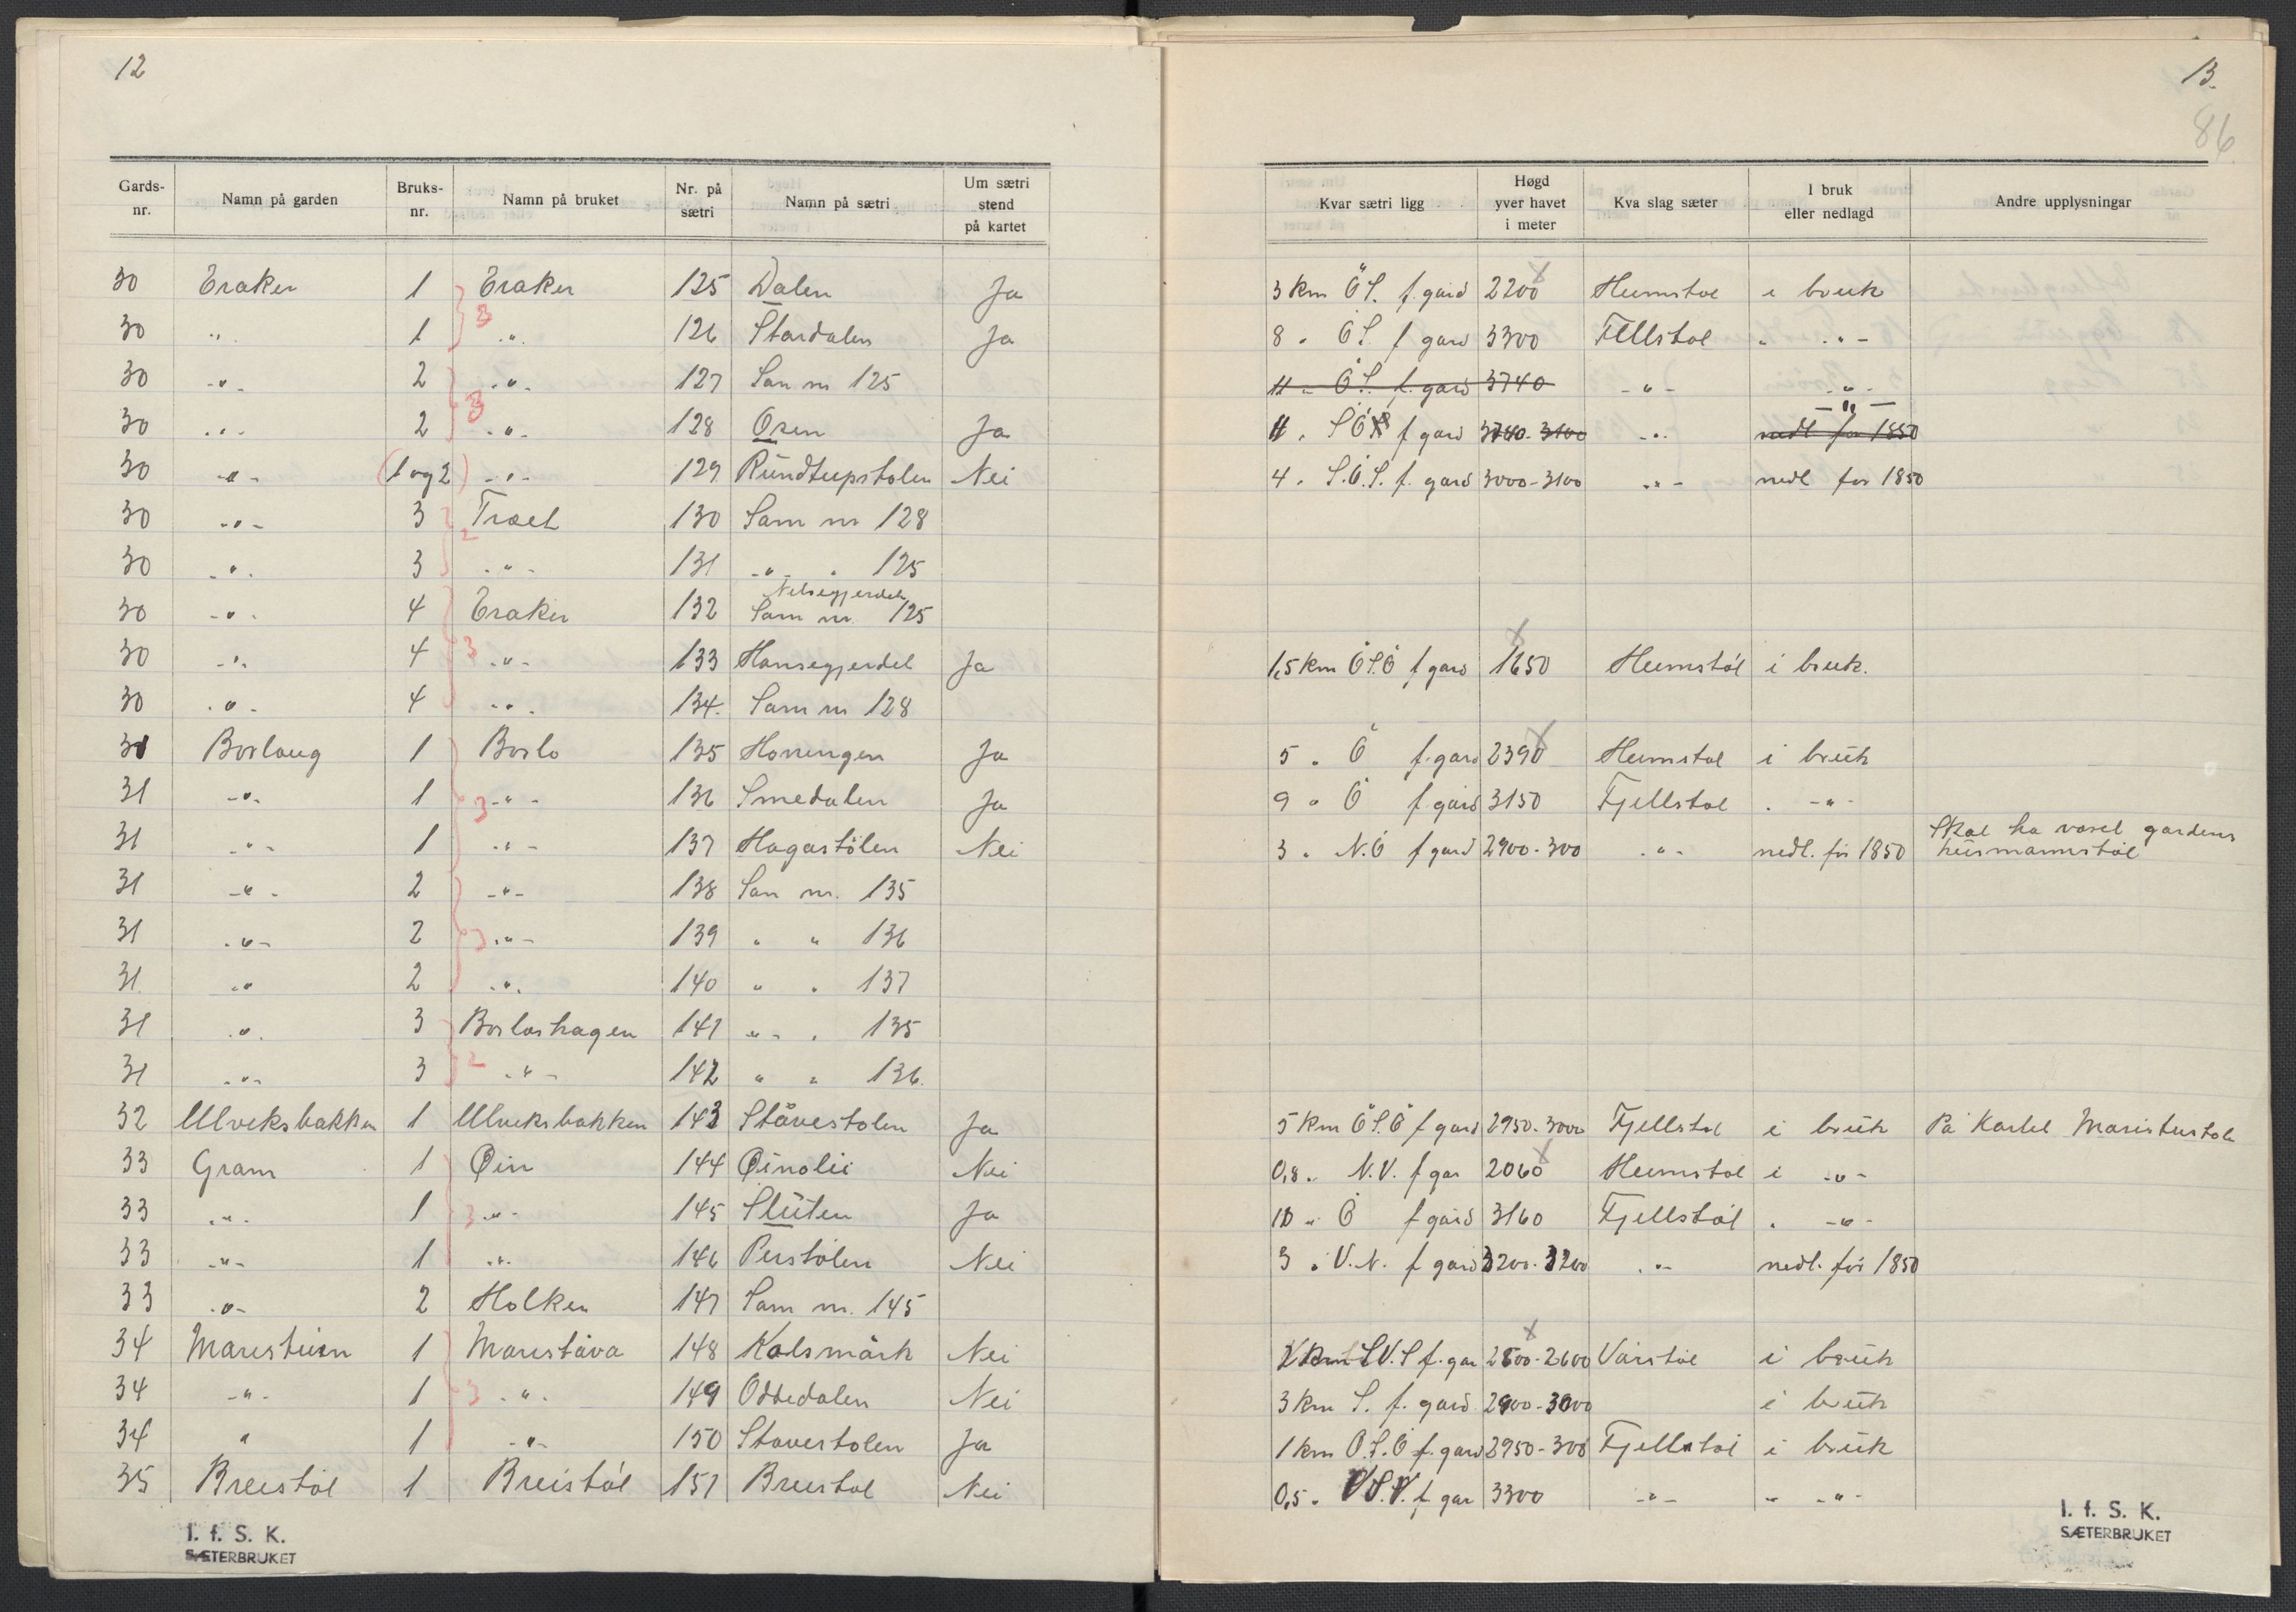 12
Gards-nr. Namn på garden Bruks-nr. Namn på bruket Nr. på sætri Namn på sætri Um sætri stend på kartet
30 Eraker 1 Eraker 125 Dalen Ja
30 " 1 -"- 126 Stardalen Ja
30 -"- 2 -"- 127 San nr 125
30 -"- 2 -"- 128 Oren Ja
30 -"- (1 og 2) -"- 129 Nei
30 -"- 3 Træet 130 Sam nr 128
30 -"- 3 -"- 131 -"- " 125
30 -"- 4 Eraker 132 Sam nr. 125
30 -"- 4 -"- 133 Hansegjerdet Ja
30 -"- 4 -"- 134. Sam nr 128
31 Borlaug 1 Borlo 135 Honungen Ja
31 -"- 1 -"- 136 Smedalen Ja
31 -"- 1 -"- 137 Hagastölen Nei
31 -"- 2 -"- 138 San nr. 135
31 -"- 2 -"- 139 " " 136
31 -"- 2 -"- 140 " " 137
31 -"- 3 Borloshagen 141 -"- " 135
31 -"- 3 -"- 142 " " 136.
32 Ulveksbakken 1 Ulveksbakken 143 Ståvestolen Ja
33 Gram 1 Øin 144 Øinolii Nei
33 -"- 1 -"- 145 Slŭten Ja
33 -"- 1 -"- 146 Perstolen Nei
33 -"- 2 Holken 147 Sam nr. 145
34 Maristuen 1 Maristova 148 Kalsmårk Nei
34 -"- 1 -"- 149 Oddedalen Nei
34 " 1 -"- 150 Stovestolen Ja
35 Breistöl 1 Breistöl 151 Breistol Nei
I. f. S. K.
SÆTERBRUKET
13.
86
Kvar sætri ligg Høgd yver havet i meter Kva slag sæter I bruk eller nedlagd Andre upplysningar
3 km Ö S. f. gård 2200 Heimstol i bruk
8 " Ö S. f gard 3300 Fjellstol " -"-
11 " Ö S. f. gard 3740 -"- -"-
11 " S Ö f gard 3740-3100 -"- -"- nedl før 1850
4 " S.Ö.S. f. gard 3000-3100 -"- nedl før 1850
1,5 km Ö S.Ö f gard 1650 Heimstöl i bruk.
5 " Ö f. gard 2390 Heimstol i brŭk
9 " Ö f gård 3150 Fjellstol " -"-
3 " N.Ö f gard 2900-300 -"- nedl. før 1850 Skal ha voret gardens husmannstöl
5 km Ö S.Ö f gard 2950-3000 Fjellstol i brŭk På kartet Maristustolen
0,8 " N.V. f gar 2060 Heimstol i -"-
10 " Ö f gård 3160 Fjellstöl " -"-
3 " V.N. f gard 3200-3200 -"- nedl. før 1850
2 km S V. S f. gar 2500-2600 Vårstöl i brŭk
3 km S. f. gard. 2900-3000 i brŭk
1 km Ö S.Ö f. gard 2950-300 Fjellstöl i brŭk
0,5 " V S.V. f gar 3300 -"- " -"-
I. f. S. K.
SÆTERBRUKET